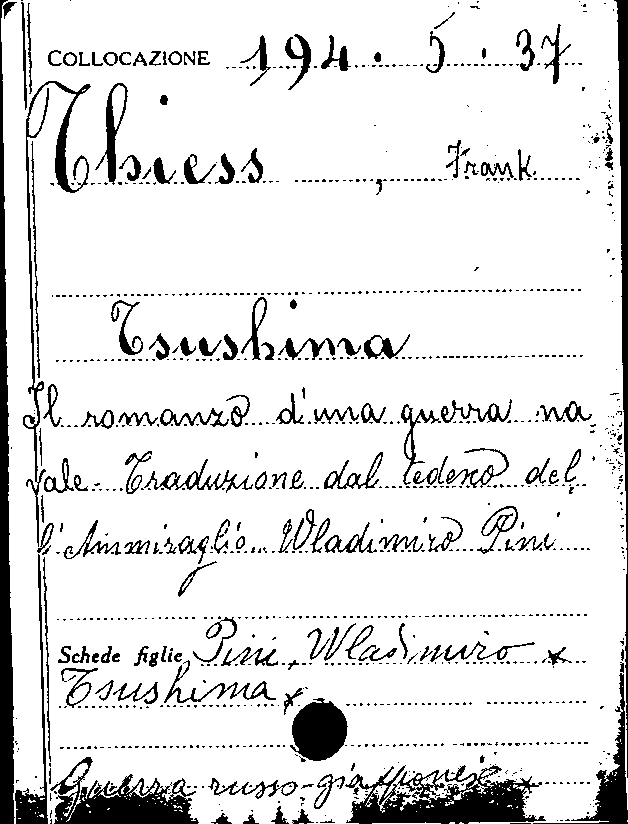 COLLOCAZIONE 194. 5. 37
Thiess, Frank
Tsushima
Il romanzo d'una guerra na
vale - Traduzione dal tedesco del
l'Ammiraglio Wladimiro Pini
Schede figlie Pini, Wladimiro x
Tsushima x
Guerra russo-giapponese x